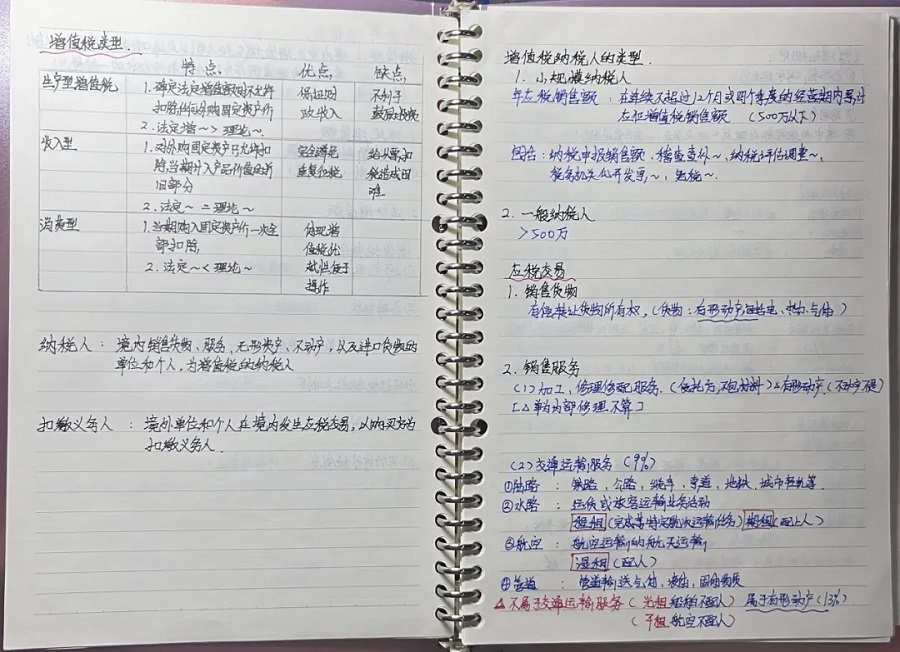 增值税类型.
特点. 优点. 缺点.
生产型增值税 1.确定法定增值额时不允许 保证财 不利于
扣除任何外购固定资产价 政收入 鼓励投资
2.法定增~> 理论~.
收入型 1.对外购固定资产只允许扣 完全避免 给以票扣
除当期计入产品价值的折 重复征税 税造成困
旧部分 难
2.法定~ = 理论~
消费型 1.当期购入固定资产价一次全 体现增
部扣除, 值税优
2.法定~< 理论~ 越性便于
操作
纳税人: 境内销售货物、服务、无形资产、不动产,以及进口货物的
单位和个人,为增值税的纳税人
扣缴义务人 : 境外单位和个人在境内发生应税交易,以购买方为
扣缴义务人.
增值税纳税人的类型.
1.小规模纳税人
年应税销售额 : 在连续不超过12个月或四个季度的经营期内累计
应征增值税销售额 (500万以下)
包含:纳税申报销售额、稽查查补~、纳税评估调整~、
税务机关代开发票~、免税~.
2.一般纳税人
>500万
应税交易
1.销售货物
有偿转让货物所有权,(货物:有形动产,包括电、热力、气体)
2.销售服务
(1)加工、修理修配服务.
(2)交通运输服务 (9%)
①陆路 : 铁路、公路、缆车、索道、地铁、城市轻轨等.
②水路 : 运货或旅客运输业务活动
程租(完成某特定航次运输任务) 期租(配上人)
③航空 : 航空运输的航天运输
湿租(配人)
④管道 : 管道输送气体、液体、固体物质
△不属于交通运输服务(光租 船舶不配人) 属于有形动产(13%)
(干租 航空不配人)